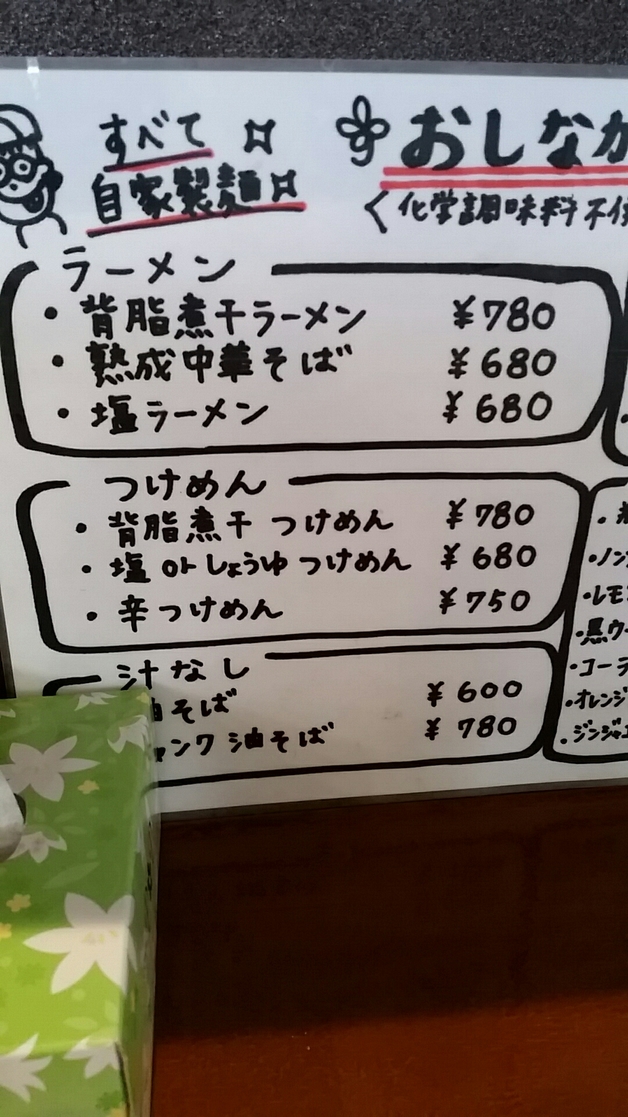 すべて
自家製麺
おしなが
化学調味料不使
ラーメン
・背脂煮干ラーメン ¥780
・熟成中華そば ¥680
・塩ラーメン ¥680
つけめん
・背脂煮干 つけめん ¥780
・塩 or しょうゆ つけめん ¥680
・辛つけめん ¥750
汁なし
油そば ¥600
ャンク 油そば ¥780
・ノン
・レモ
・黒ウ
・コーラ
・オレンジ
・ジンジャエ